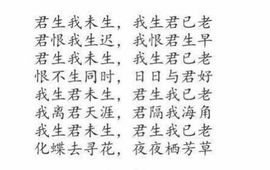 君生我未生，我生君已老
君恨我生迟，我恨君生早
君生我未生，我生君已老
恨不生同时，日日与君好
我生君未生，君生我已老
我离君天涯，君隔我海角
我生君未生，君生我已老
化蝶去寻花，夜夜栖芳草